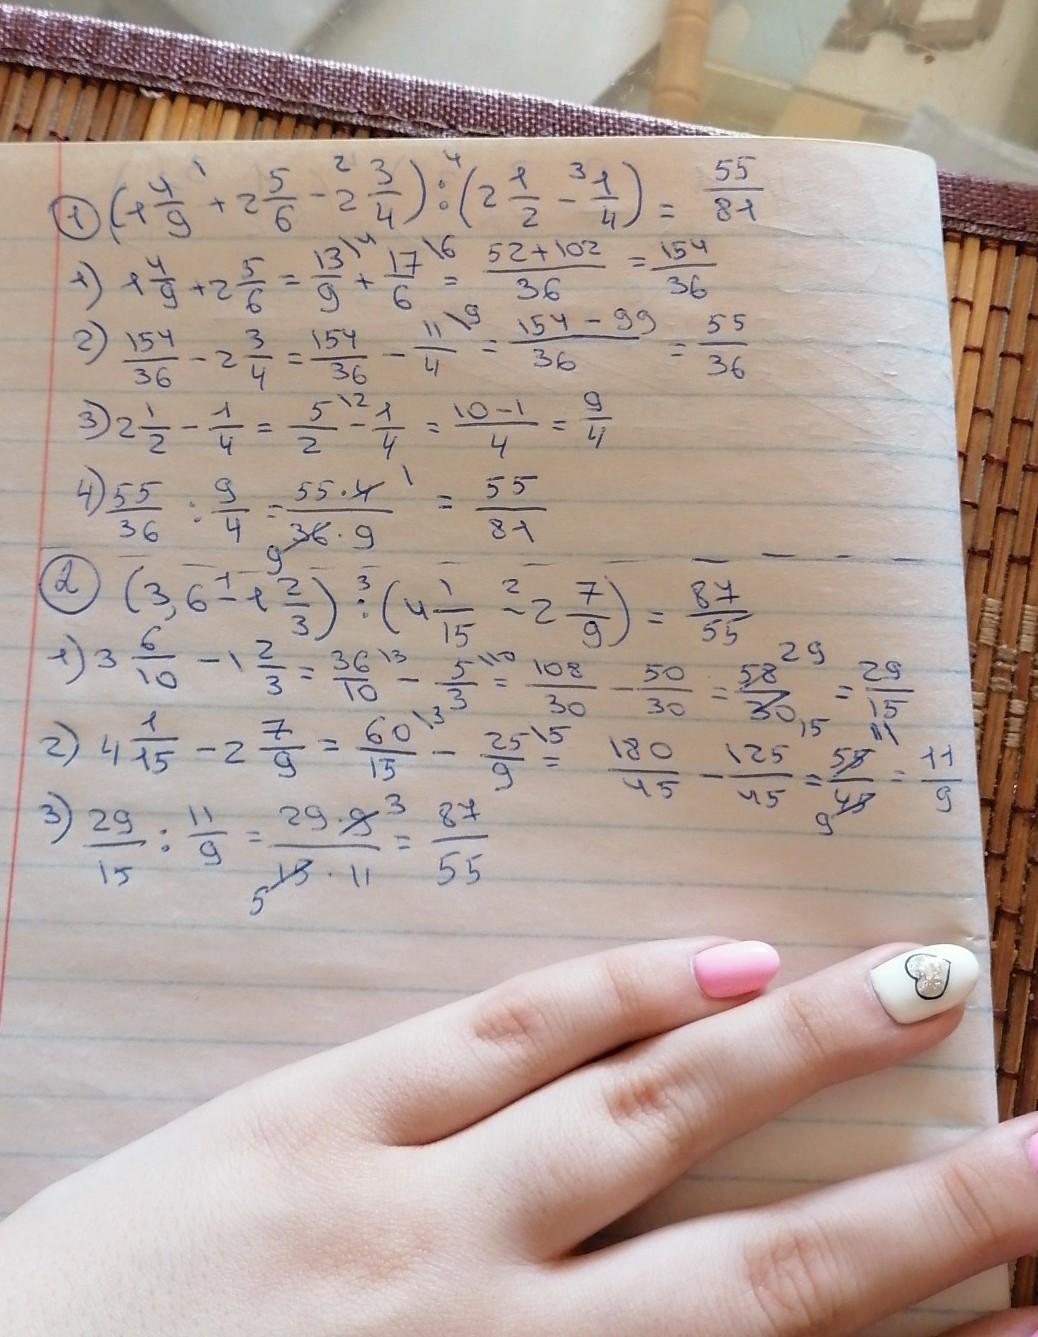 ① (1 4/9 + 2 5/6 - 2 3/4) : (2 1/2 - 1/4) = 55/81
1) 1 4/9 + 2 5/6 = 13/9 \4 + 17/6 \6 = (52+102)/36 = 154/36
2) 154/36 - 2 3/4 = 154/36 - 11/4 \9 = (154-99)/36 = 55/36
3) 2 1/2 - 1/4 = 5/2 \2 - 1/4 = (10-1)/4 = 9/4
4) 55/36 : 9/4 = (55·4)/(36·9) = 55/81
② (3,6 - 1 2/3) : (4 1/15 - 2 7/9) = 87/55
1) 3 6/10 - 1 2/3 = 36/10 \3 - 5/3 \10 = 108/30 - 50/30 = 58/30 = 29/15
2) 4 1/15 - 2 7/9 = 60/15 \3 - 25/9 \5 = 180/45 - 125/45 = 55/45 = 11/9
3) 29/15 : 11/9 = (29·9)/(15·11) = 87/55